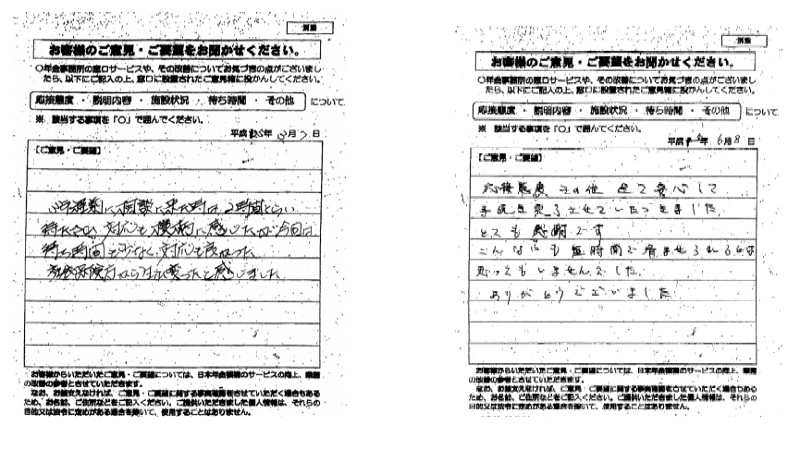 お客様のご意見・ご要望をお聞かせください。
○年金事務所の窓口サービスや、その改善についてお気づきの点がございまし
たら、以下にご記入の上、窓口に設置されたご意見箱に投かんしてください。
応接態度 ・ 説明内容 ・ 施設状況 ・ 待ち時間 ・ その他 について
※ 該当する事項を「○」で囲んでください。
平成 年 月 日
【ご意見・ご要望】
に相談に来た時は、2時間くらい
待たされ、対応も 的に感じたが今回は
待ち時間も少なく、対応も良かった
変ったと感じました
お客様からいただいたご意見・ご要望については、日本年金機構のサービスの向上、業務
の改善の参考とさせていただきます。
なお、お差支えなければ、ご意見・ご要望に関する事実確認をさせていただく場合もある
ため、お名前、ご住所などをご記入ください。ご提供いただきました個人情報は、それらの
目的又は法令に定めがある場合を除いて、使用することはありません。
お客様のご意見・ご要望をお聞かせください。
○年金事務所の窓口サービスや、その改善についてお気づきの点がございまし
たら、以下にご記入の上、窓口に設置されたご意見箱に投かんしてください。
応接態度 ・ 説明内容 ・ 施設状況 ・ 待ち時間 ・ その他 について
※ 該当する事項を「○」で囲んでください。
平成 年 6月 8日
【ご意見・ご要望】
応接態度 その他 全て安心して
手続を完了させていただきました
とても感謝です
こんなにも短時間で済ませられるとは
思ってもいませんでした
ありがとうございました
お客様からいただいたご意見・ご要望については、日本年金機構のサービスの向上、業務
の改善の参考とさせていただきます。
なお、お差支えなければ、ご意見・ご要望に関する事実確認をさせていただく場合もある
ため、お名前、ご住所などをご記入ください。ご提供いただきました個人情報は、それらの
目的又は法令に定めがある場合を除いて、使用することはありません。